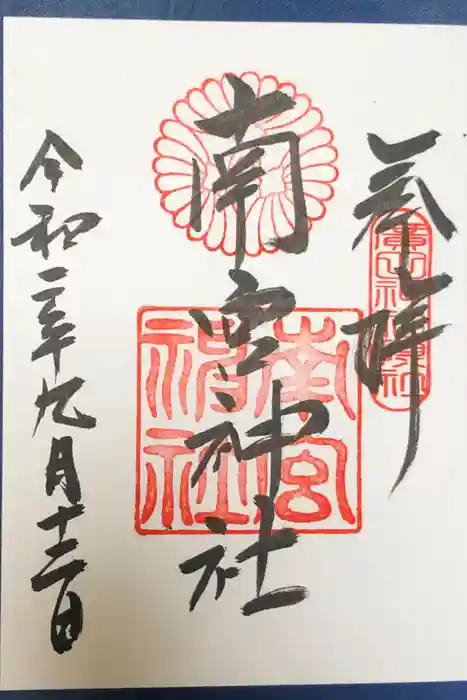 奉拝
南宮神社
南宮
神社
令和二年九月十三日